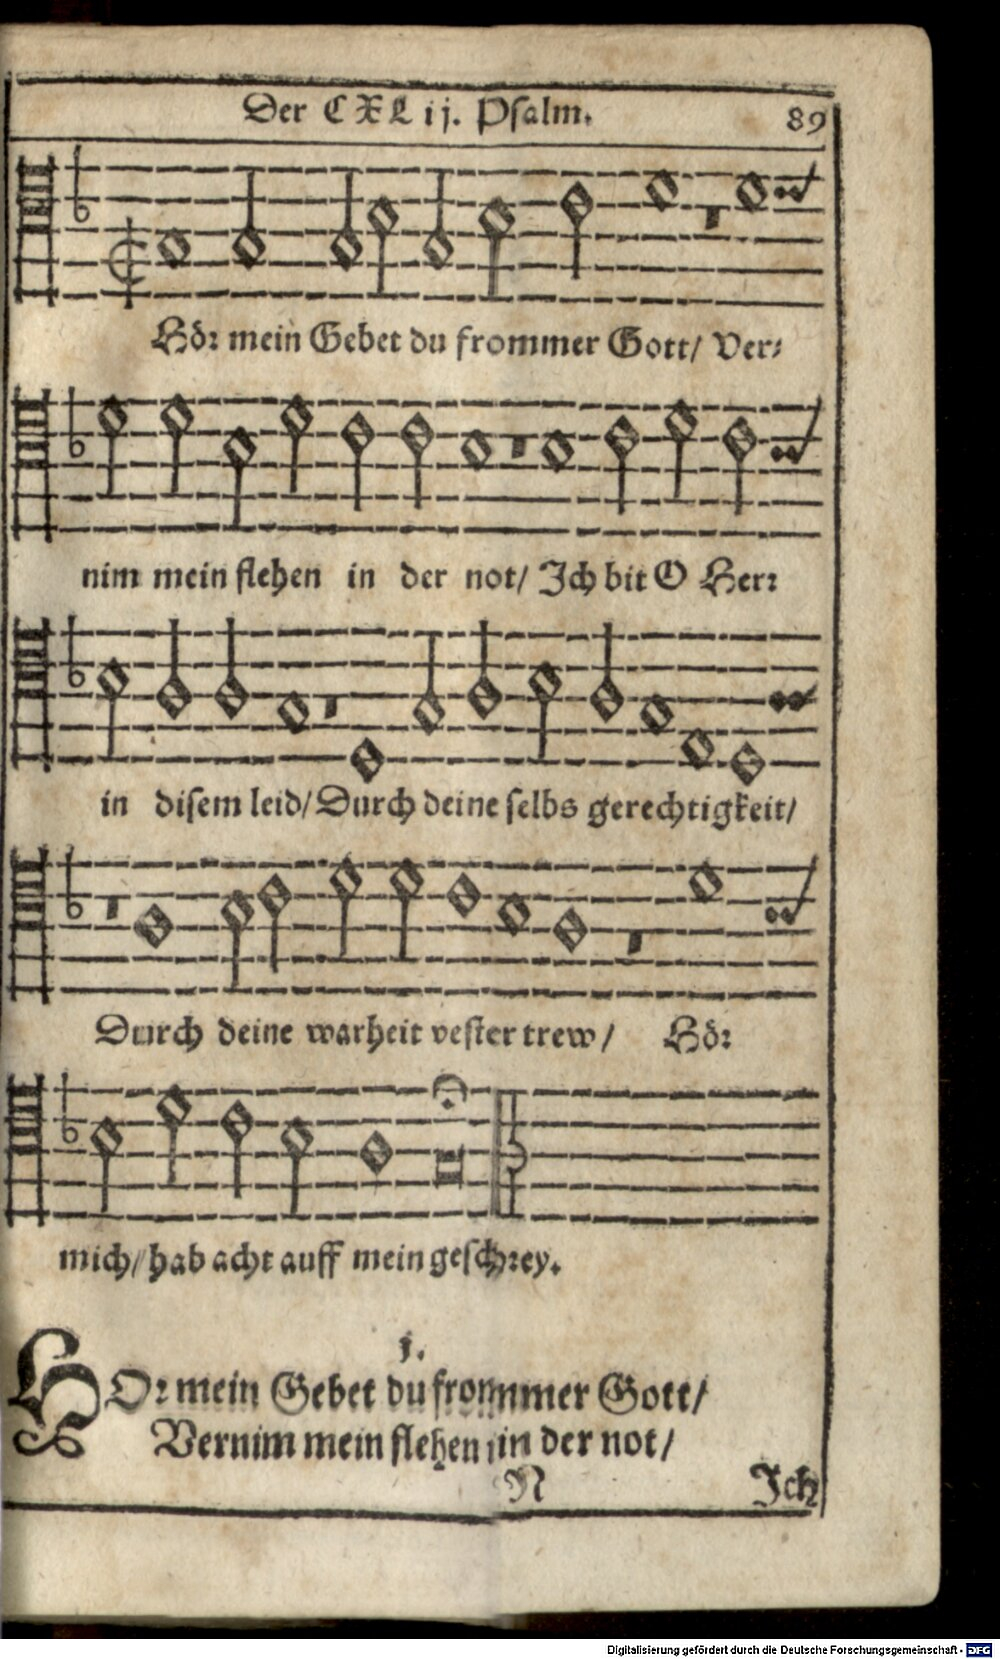 Der CXLij. Psalm. 89
Hör mein Gebet du frommer Gott/ Ver-
nim mein flehen in der not/ Ich bit O Herr
in disem leid/ Durch deine selbs gerechtigkeit/
Durch deine warheit vester trew/ Hör
mich/ hab acht auff mein geschrey.
j.
HOr mein Gebet du frommer Gott/
Vernim mein flehen in der not/
N Ich
Digitalisierung gefördert durch die Deutsche Forschungsgemeinschaft - DFG